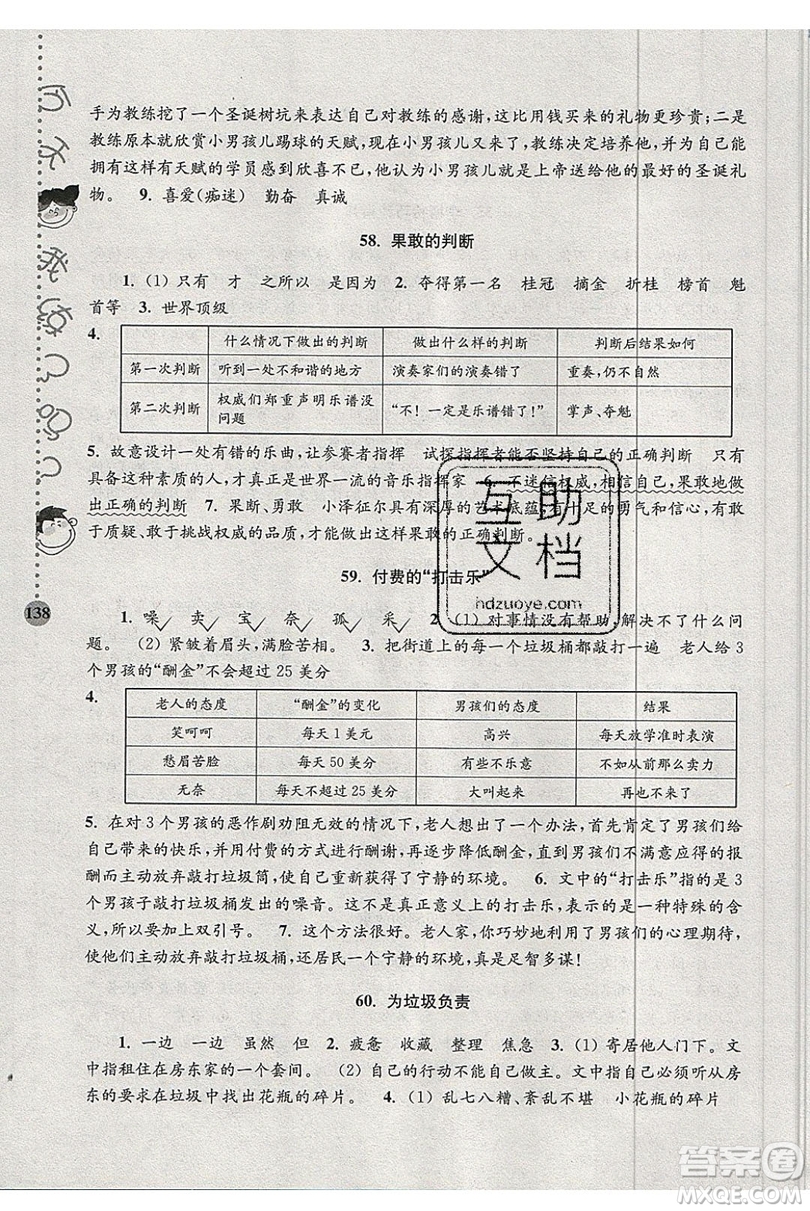 手为教练挖了一个圣诞树坑来表达自己对教练的感谢，这比用钱买来的礼物更珍贵；二是
教练原本就欣赏小男孩儿踢球的天赋，现在小男孩儿又来了，教练决定培养他，并为自己能
拥有这样有天赋的学员感到欣喜不已，他认为小男孩儿就是上帝送给他的最好的圣诞礼
物。 9. 喜爱(痴迷) 勤奋 真诚
58. 果敢的判断
1. (1) 只有 才 之所以 是因为 2. 夺得第一名 桂冠 摘金 折桂 榜首 魁
首等 3. 世界顶级
4.
什么情况下做出的判断 做出什么样的判断 判断后结果如何
第一次判断 听到一处不和谐的地方 演奏家们的演奏错了 重奏，仍不自然
第二次判断 权威们郑重声明乐谱没问题 “不！一定是乐谱错了！” 掌声、夺魁
5. 故意设计一处有错的乐曲，让参赛者指挥 试探指挥者能否坚持自己的正确判断 只有
具备这种素质的人，才真正是世界一流的音乐指挥家 6. 不迷信权威，相信自己，果敢地做
出正确的判断 7. 果断、勇敢 小泽征尔具有深厚的艺术底蕴；有十足的勇气和信心，有敢
于质疑、敢于挑战权威的品质，才能做出这样果敢的正确判断。
59. 付费的“打击乐”
1. 噪 卖 宝 奈 孤 采 2. (1) 对事情没有帮助，解决不了什么问
题。 (2) 紧皱着眉头，满脸苦相。 3. 把街道上的每一个垃圾桶都敲打一遍 老人给3
个男孩的“酬金”不会超过25美分
4.
老人的态度 “酬金”的变化 男孩们的态度 结果
笑呵呵 每天1美元 高兴 每天放学准时表演
愁眉苦脸 每天50美分 有些不乐意 不如从前那么卖力
无奈 每天不超过25美分 大叫起来 再也不来了
5. 在对3个男孩的恶作剧劝阻无效的情况下，老人想出了一个办法，首先肯定了男孩们给
自己带来的快乐，并用付费的方式进行酬谢，再逐步降低酬金，直到男孩们不满足得到的报
酬而主动放弃敲打垃圾筒，使自己重新获得了宁静的环境。 6. 文中的“打击乐”指的是3
个男孩子敲打垃圾桶发出的噪音。这不是真正意义上的打击乐，表示的是一种特殊的含
义，所以要加上双引号。 7. 这个方法很好。老人家，你巧妙地利用了男孩们的心理期待，
使他们主动放弃敲打垃圾桶，还居民一个宁静的环境，真是足智多谋！
60. 为垃圾负责
1. 一边 一边 虽然 但 2. 疲惫 收藏 整理 焦急 3. (1) 寄居他人门下。文
中指租住在房东家的一个套间。 (2) 自己的行动不能自己做主。文中指必须听从房
东的要求在垃圾中找出花瓶的碎片。 4. (1) 乱七八糟、紊乱不堪 小花瓶的碎片
138
互助
文档
hdzuoye.com
答案圈
MXQE.COM